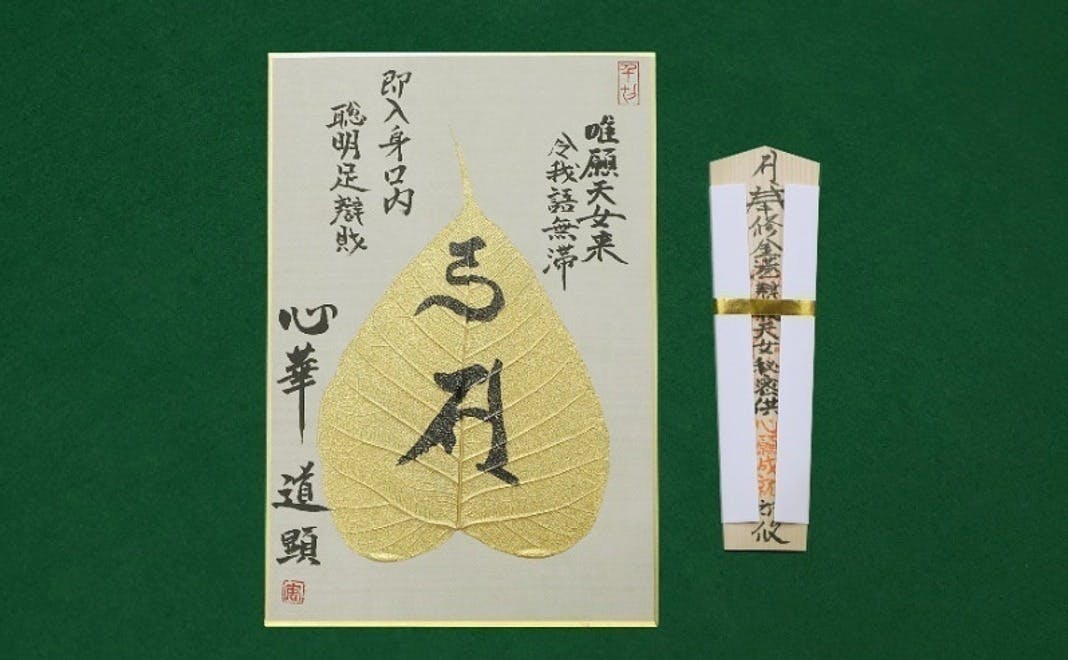 唯願天女来
令我語無滞
即入身口内
聡明足辯財
心華 道顕
奉修金天女秘密供心願成就攸